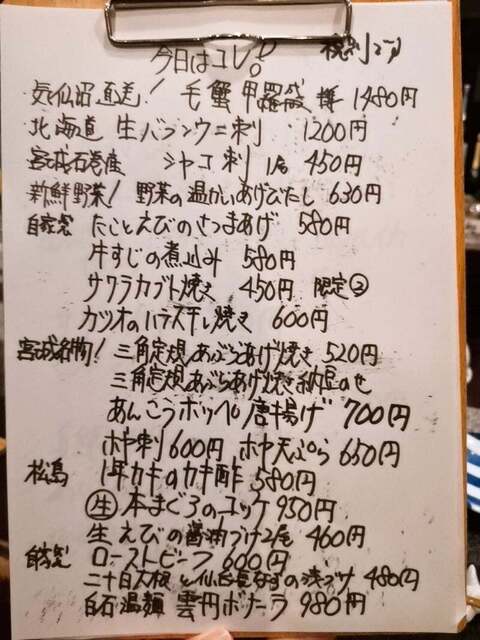 今日はコレ!!
税別です
気仙沼直送! 毛蟹甲羅盛 1480円
北海道 生バフンウニ刺 1200円
宮城石巻産 シャコ刺 450円
新鮮野菜! 野菜の温かいあげびたし 630円
自家製 たことえびのさつまあげ 580円
牛すじの煮込み 580円
サワラカブト焼き 450円 限定②
カツオのハラス干し焼き 600円
宮城名物! 三角定規あぶらあげ焼き 520円
三角定規あぶらあげ焼き納豆のせ
あんこうホッペ唐揚げ 700円
ホヤ刺 600円 ホヤ天ぷら 650円
松島 1年カキのカキ酢 580円
生 本まぐろのユッケ 950円
生えびの醤油づけ2尾 460円
自家製 ローストビーフ 600円
二十日大根と仙台長なすの浅づケ 480円
白石温麺 雲丹ボナーラ 980円